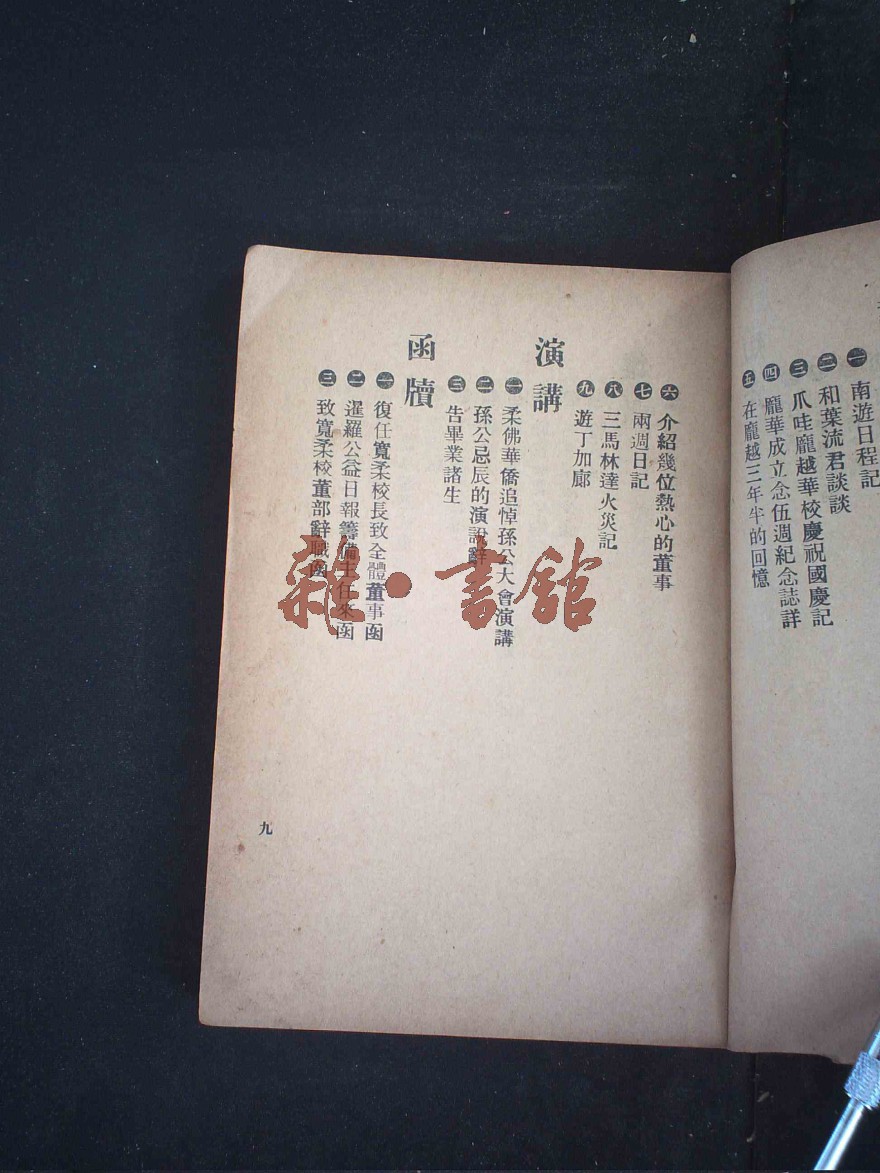 一 南遊日程記
二 和葉流君談談
三 爪哇龐越華校慶祝國慶記
四 龐華成立念伍週紀念誌詳
五 在龐越三年半的回憶
六 介紹幾位熱心的董事
七 兩週日記
八 三馬林達火災記
九 遊丁加廊
演講
一 柔佛華僑追悼孫公大會演講
二 孫公忌辰的演說辭
三 告畢業諸生
函牘
一 復任寬柔校長致全體董事函
二 暹羅公益日報籌備主任來函
三 致寬柔校董部辭職函
九
雜·書館